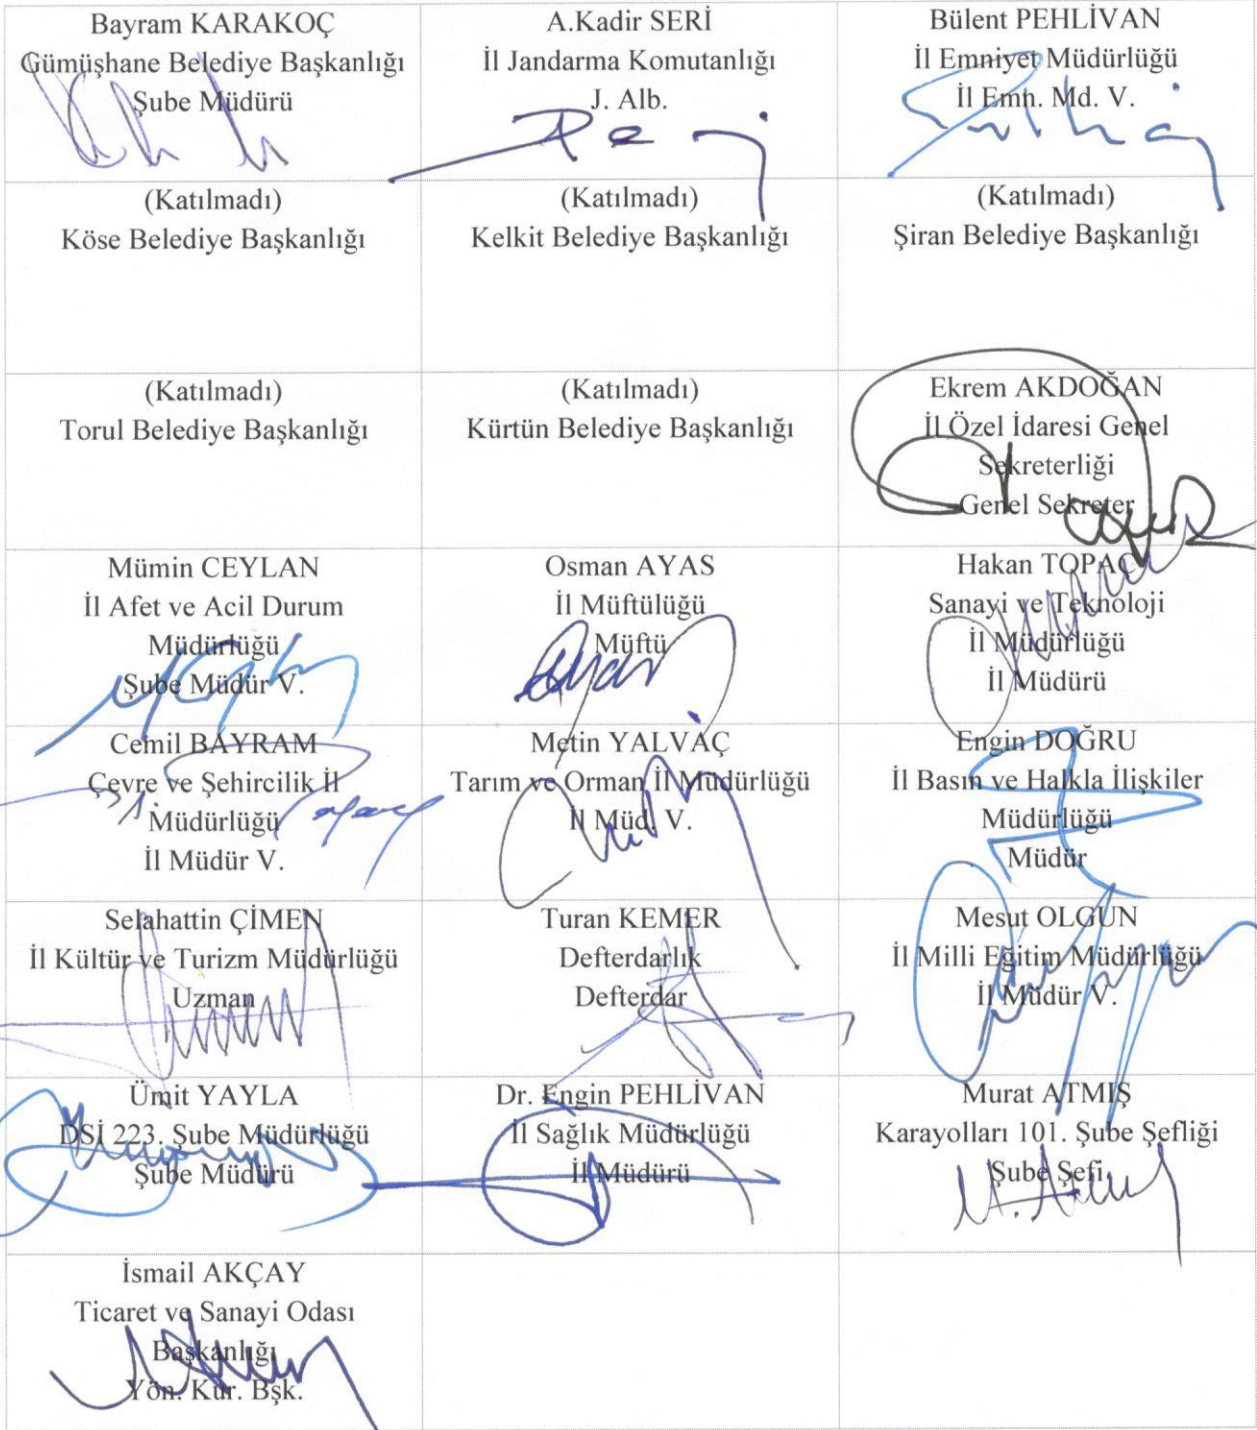 Bayram KARAKOÇ
Gümüşhane Belediye Başkanlığı
Şube Müdürü
A.Kadir SERİ
İl Jandarma Komutanlığı
J. Alb.
Bülent PEHLİVAN
İl Emniyet Müdürlüğü
İl Emn. Md. V.
(Katılmadı)
Köse Belediye Başkanlığı
(Katılmadı)
Kelkit Belediye Başkanlığı
(Katılmadı)
Şiran Belediye Başkanlığı
(Katılmadı)
Torul Belediye Başkanlığı
(Katılmadı)
Kürtün Belediye Başkanlığı
Ekrem AKDOĞAN
İl Özel İdaresi Genel
Sekreterliği
Genel Sekreter
Mümin CEYLAN
İl Afet ve Acil Durum
Müdürlüğü
Şube Müdür V.
Osman AYAS
İl Müftülüğü
Müftü
Hakan TOPAÇ
Sanayi ve Teknoloji
İl Müdürlüğü
İl Müdürü
Cemil BAYRAM
Çevre ve Şehircilik İl
Müdürlüğü
İl Müdür V.
Metin YALVAÇ
Tarım ve Orman İl Müdürlüğü
İl Müd. V.
Engin DOĞRU
İl Basın ve Halkla İlişkiler
Müdürlüğü
Müdür
Selahattin ÇİMEN
İl Kültür ve Turizm Müdürlüğü
Uzman
Turan KEMER
Defterdarlık
Defterdar
Mesut OLGUN
İl Milli Eğitim Müdürlüğü
İl Müdür V.
Ümit YAYLA
DSİ 223. Şube Müdürlüğü
Şube Müdürü
Dr. Engin PEHLİVAN
İl Sağlık Müdürlüğü
İl Müdürü
Murat ATMIŞ
Karayolları 101. Şube Şefliği
Şube Şefi
İsmail AKÇAY
Ticaret ve Sanayi Odası
Başkanlığı
Yön. Kur. Bşk.